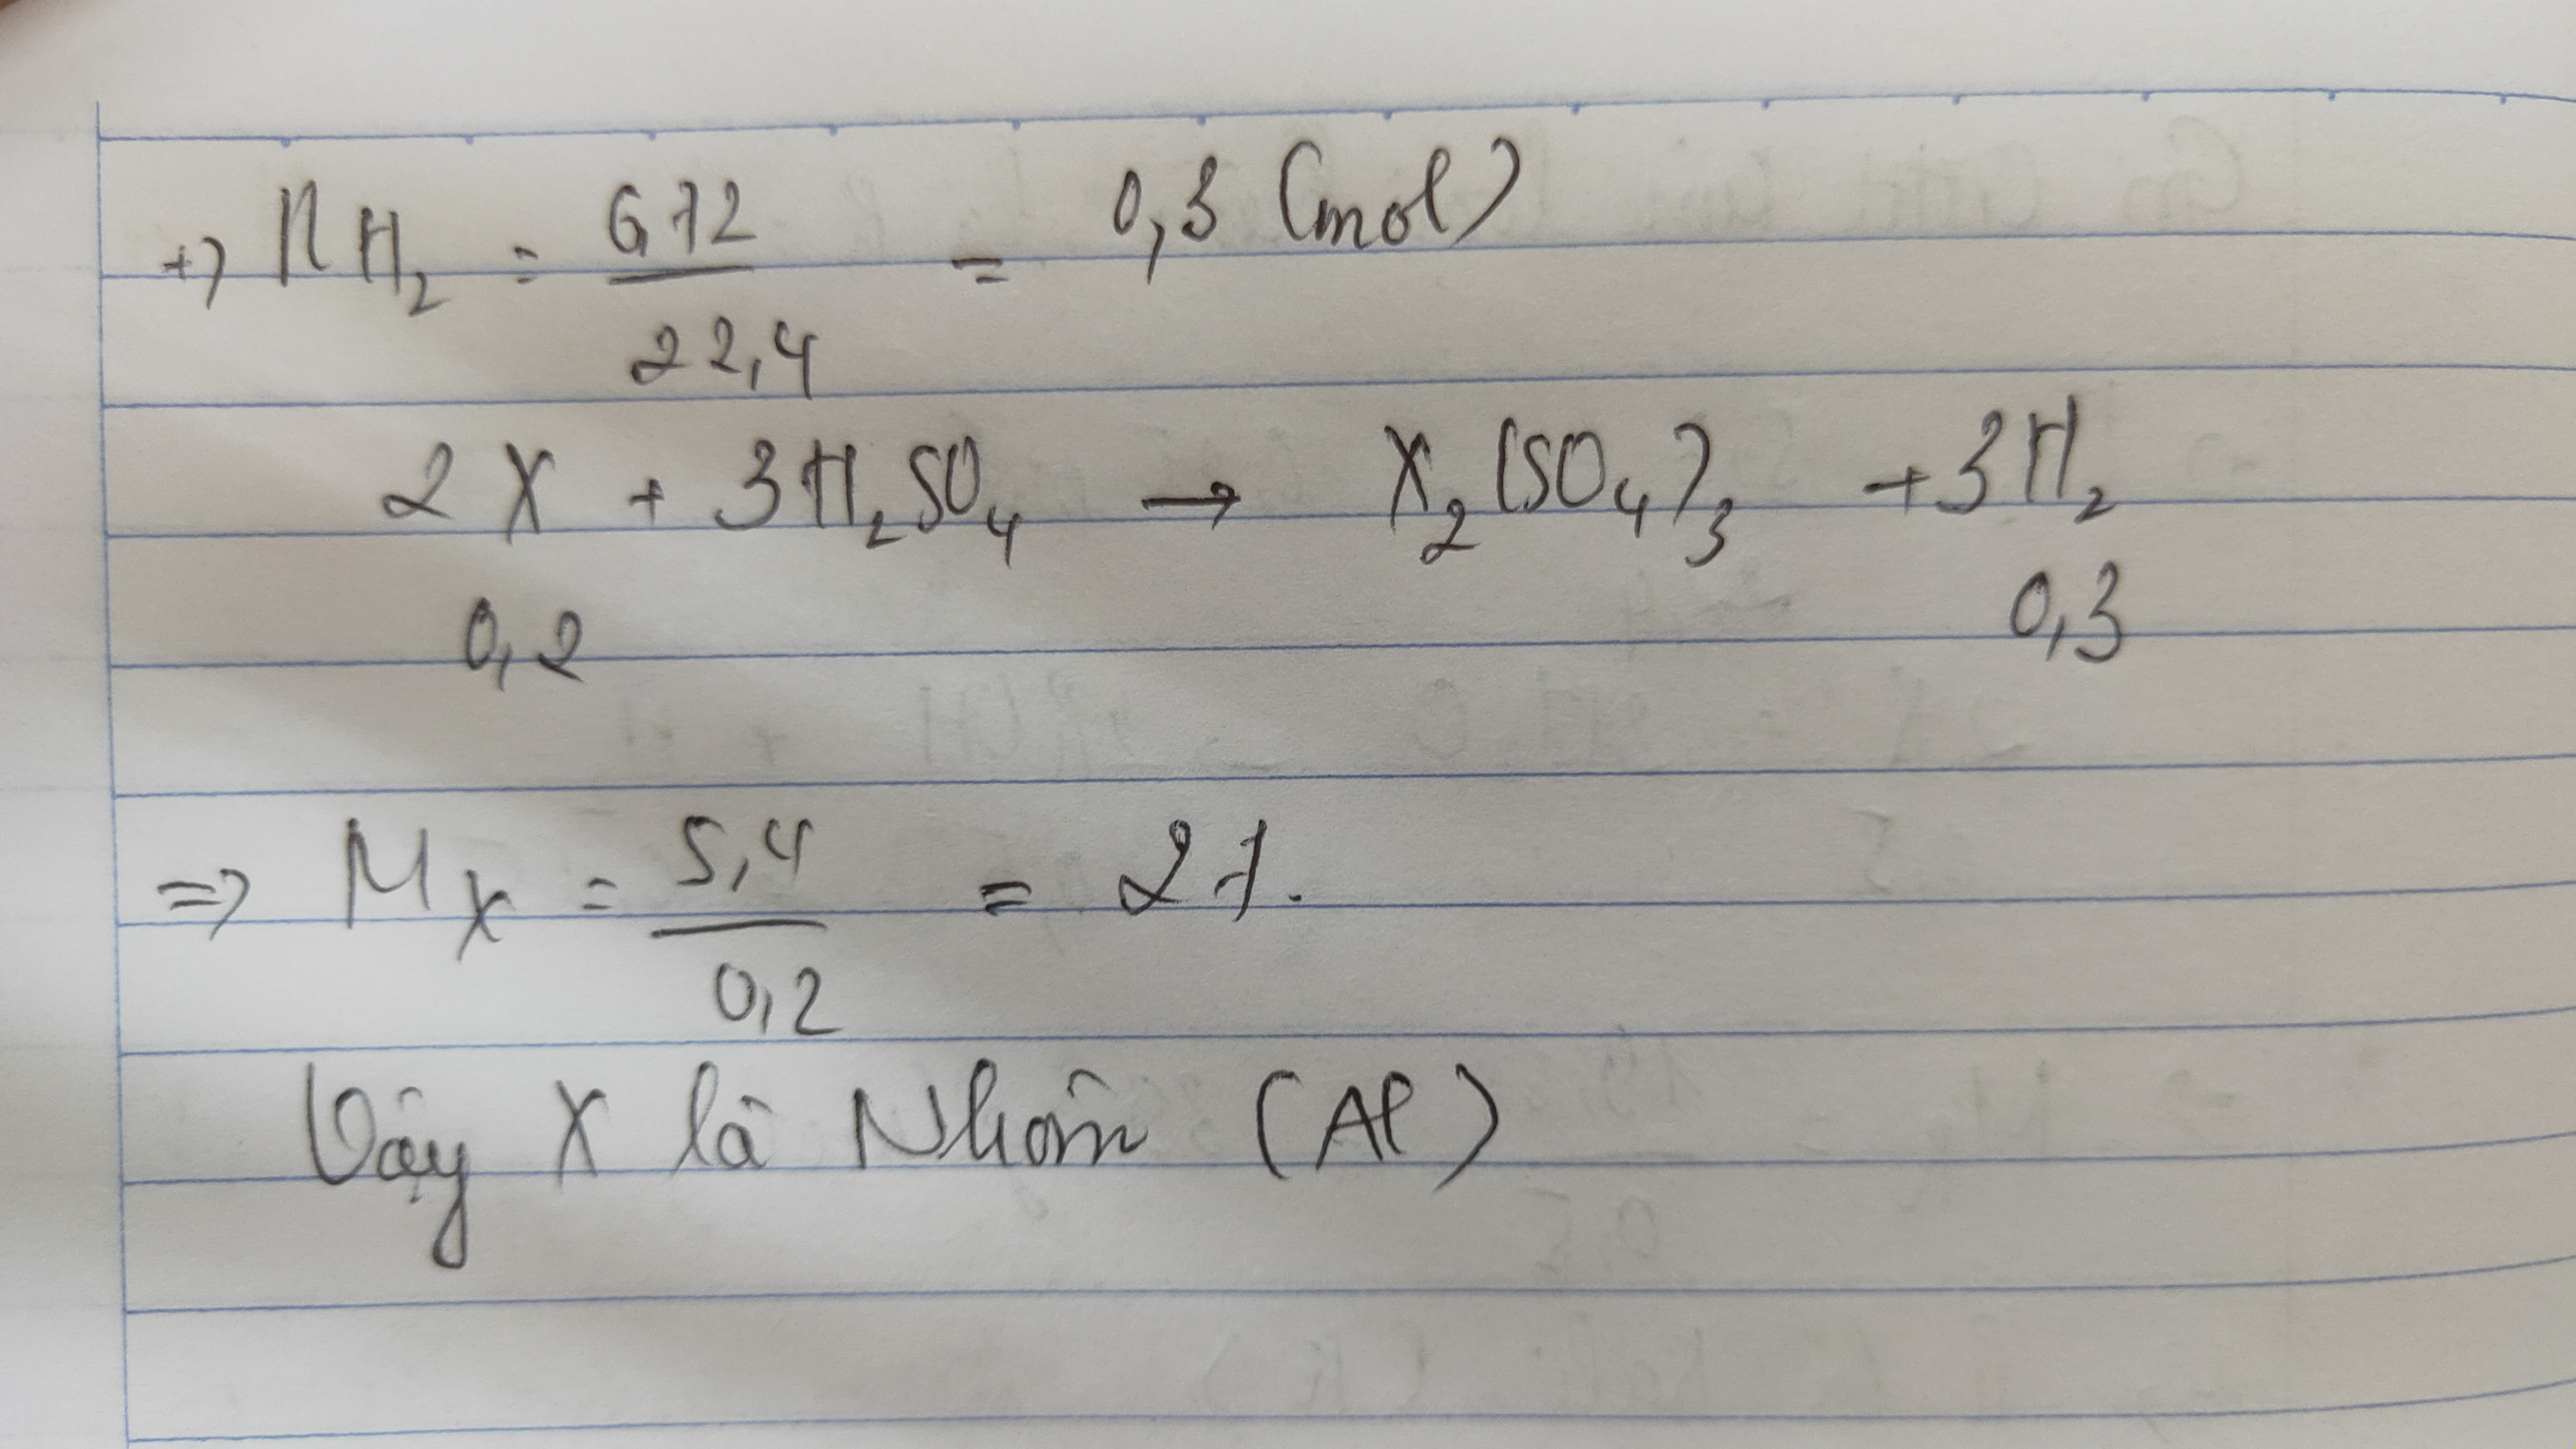 +) nH₂ = 6,72 / 22,4 = 0,3 (mol)
2X + 3H₂SO₄ → X₂(SO₄)₃ + 3H₂
0,2 0,3
=> Mx = 5,4 / 0,2 = 27.
Vậy X là Nhôm (Al)